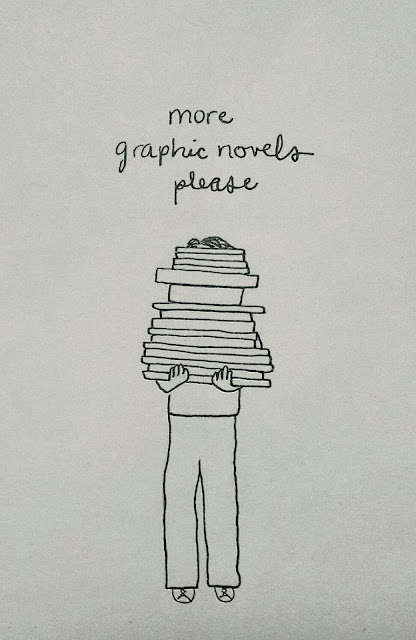 more
graphic novels
please